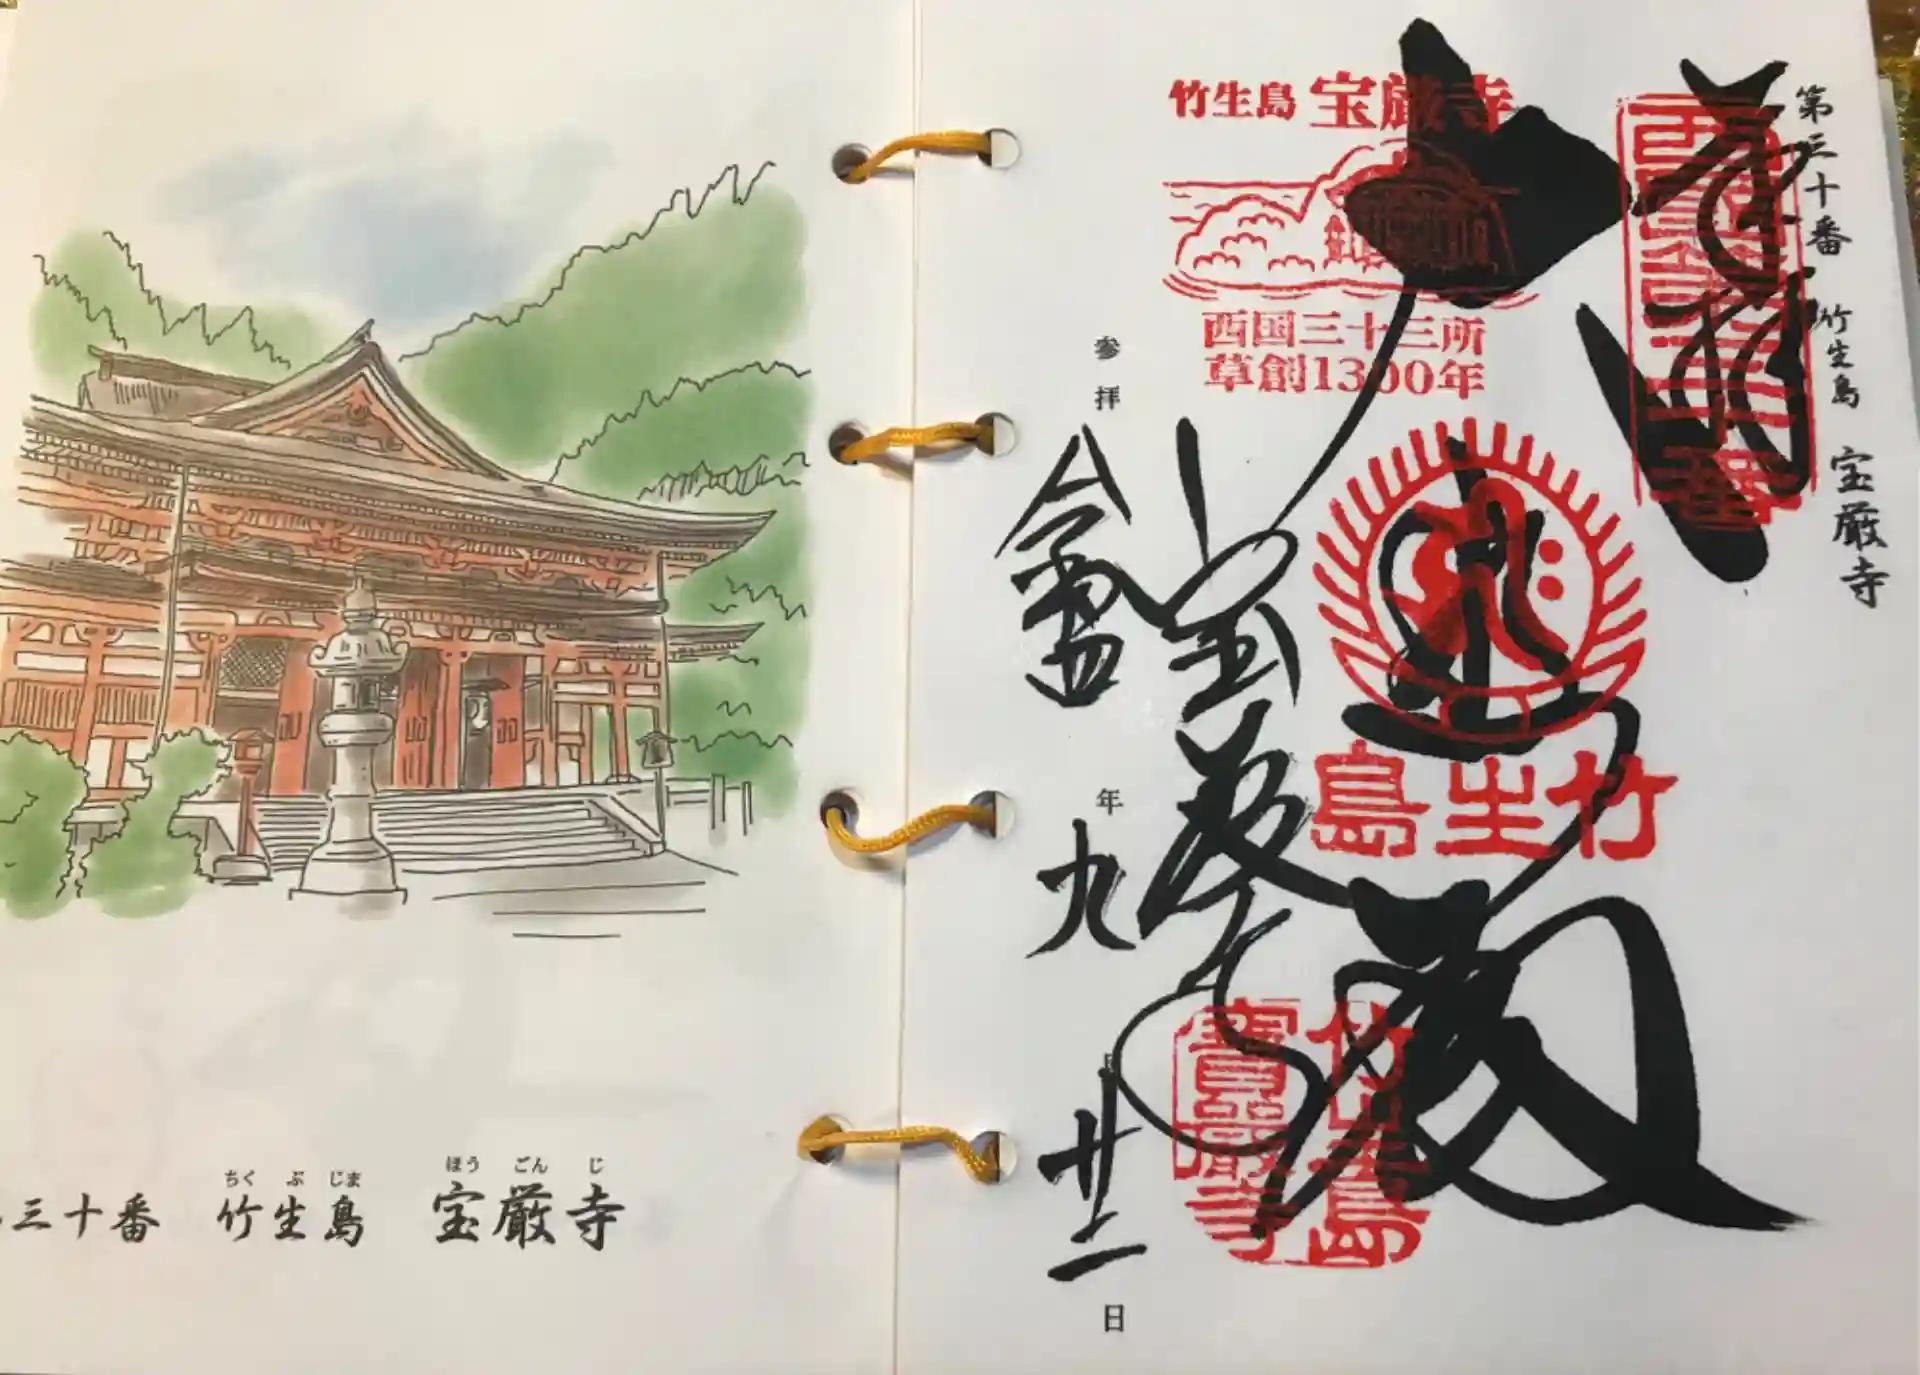 三十番　竹生島　宝厳寺
ちくぶじま　ほうごんじ
第三十番　竹生島　宝厳寺
奉拝
竹生島 宝厳寺
西国三十三所
草創1300年
竹生島
大
宝厳寺
竹生島
寶嚴寺
参拝
令和四
年
九
廿二
日